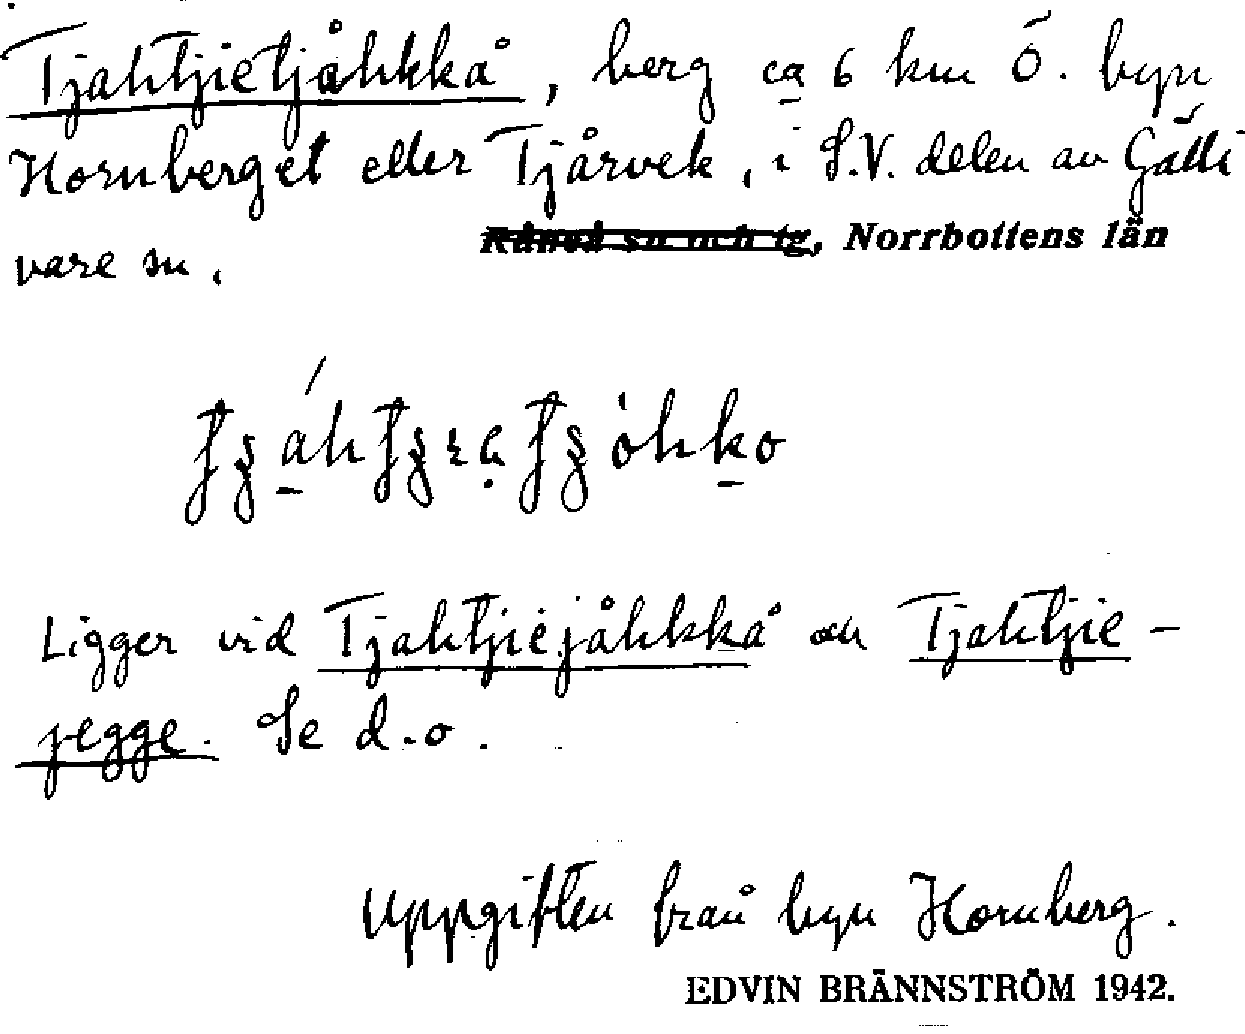 Tjahtjietjåhkkå, berg ca 6 km Ö. byn
Hornberget eller Tjårvek, i S.V. delen av Gälli
vare sn.
Råneå sn och tg, Norrbottens län
Ligger vid Tjahtjiejåhkkå och Tjahtjie-
jegge. Se d.o.
Uppgiften från byn Hornberg.
EDVIN BRÄNNSTRÖM 1942.